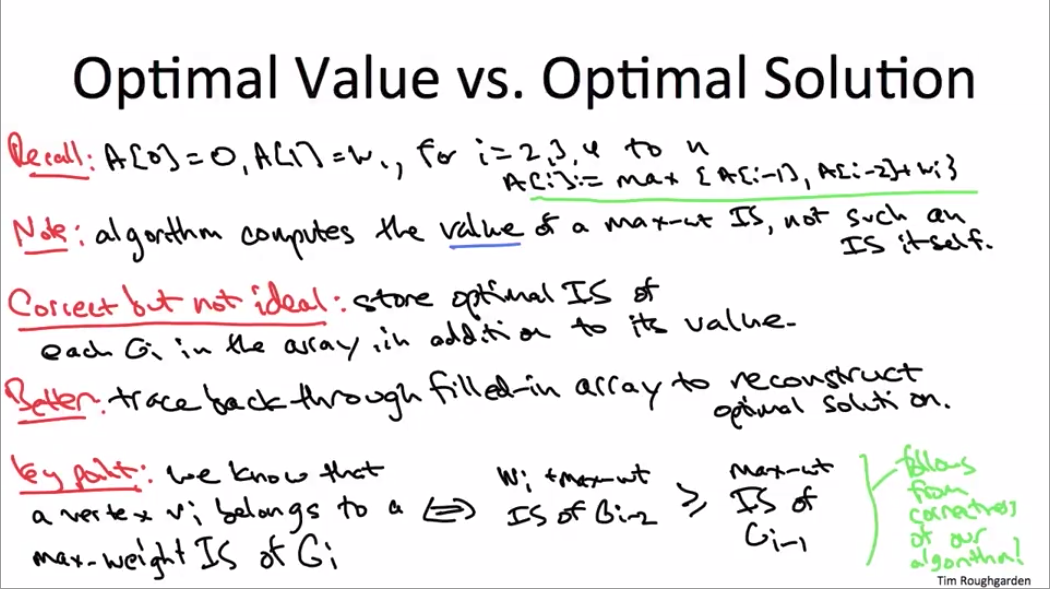 Optimal Value vs. Optimal Solution
Recall: A[0]=0, A[1]=w1, for i=2,3,4 to n
A[i]:= max {A[i-1], A[i-2]+wi}
Note: algorithm computes the value of a max-wt IS, not such an
IS itself.
Correct but not ideal: store optimal IS of
each Gi in the array in addition to its value.
Better: trace back through filled-in array to reconstruct
optimal solution.
Key point: we know that
a vertex vi belongs to a
max-weight IS of Gi
⟺
wi + max-wt
IS of Gi-2
≥
max-wt
IS of
Gi-1
follows
from
correctness
of our
algorithm!
Tim Roughgarden